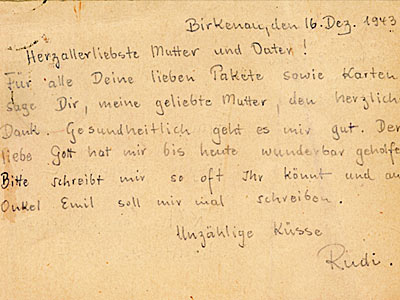 Birkenau, den 16. Dez. 1943
Herzallerliebste Mutter und Vater!
Für alle Deine lieben Pakete sowie Karten
sage Dir, meine geliebte Mutter, den herzlich
Dank. Gesundheitlich geht es mir gut. Der
liebe Gott hat mir bis heute wunderbar geholfe
Bitte schreibt mir so oft Ihr könnt und au
Onkel Emil soll mir mal schreiben.
Unzählige Küsse
Rudi.